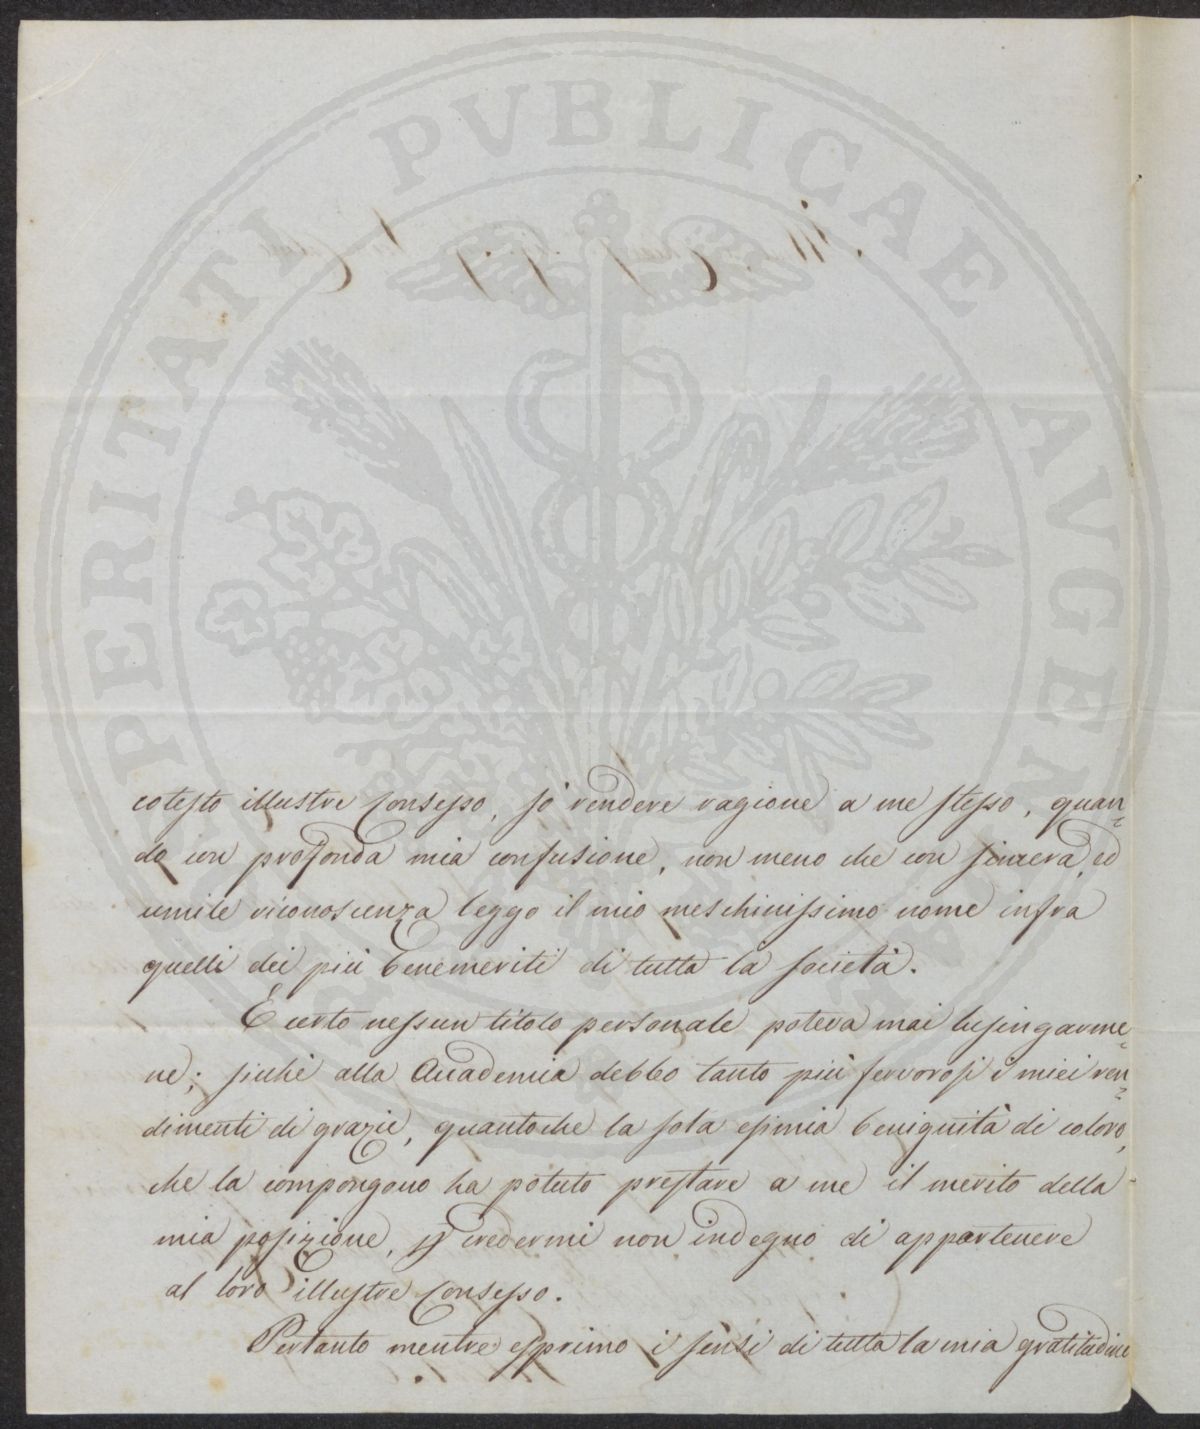 PROSPERITATI PVBLICAE AVGENDAE
cotesto illustre Consesso, so rendere ragione a me stesso, quan=
do con profonda mia confusione, non meno che con sincera, ed
umile riconoscenza leggo il mio meschinissimo nome infra
quelli dei più benemeriti di tutta la società.
E certo nessun titolo personale poteva mai lusingarme=
ne; sicchè alla Accademia debbo tanto più fervorosi i miei ren=
dimenti di grazie, quantoche la sola esimia benignità di coloro,
che la compongono ha potuto prestare a me il merito della
mia posizione, p credermi non indegno di appartenere
al loro illustre Consesso.
Pertanto mentre esprimo i sensi di tutta la mia gratitudine